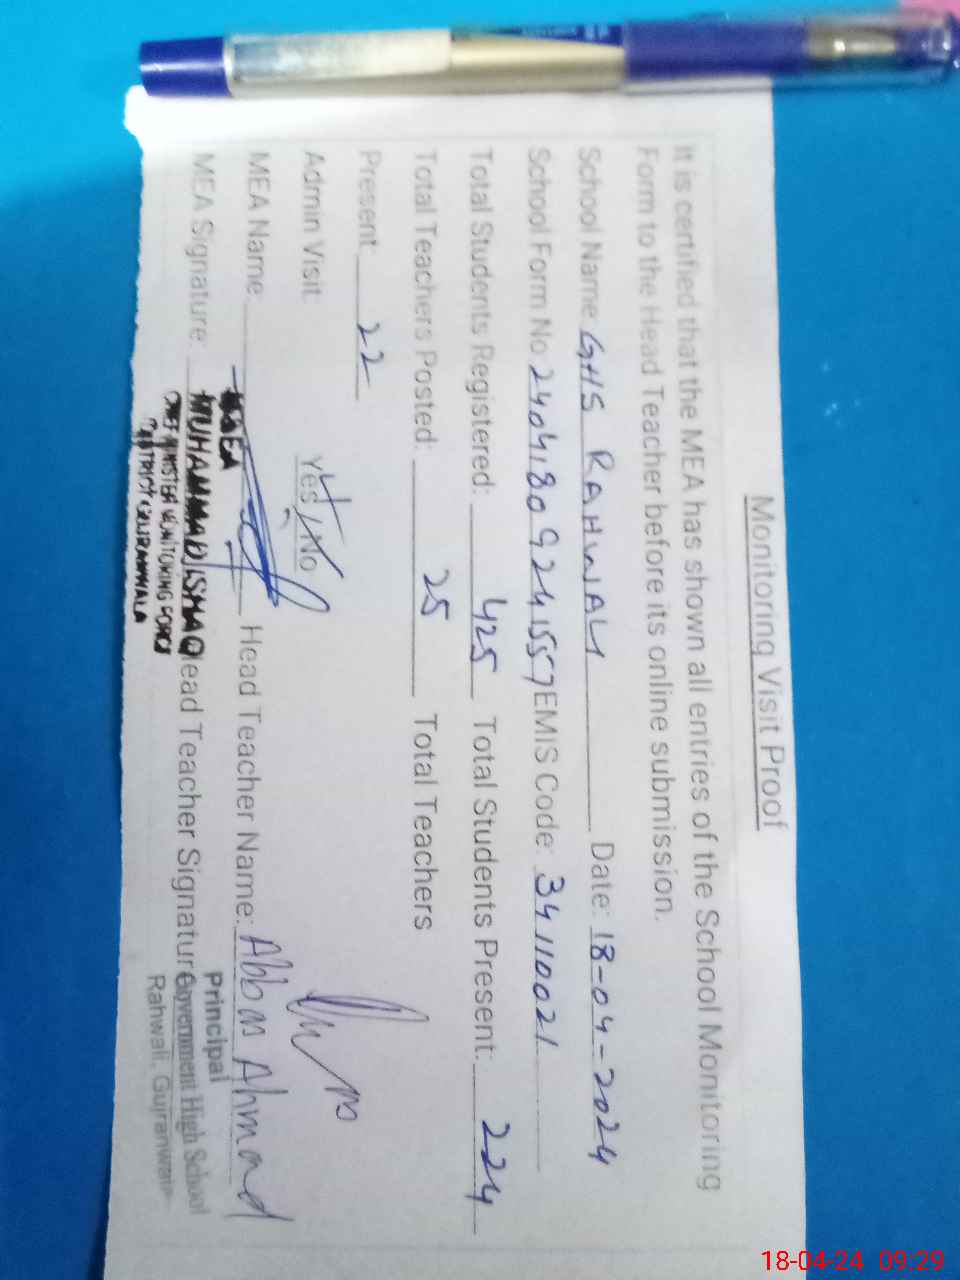 Monitoring Visit Proof
It is certified that the MEA has shown all entries of the School Monitoring
Form to the Head Teacher before its online submission.
School Name: GHS RAHWALI Date: 18-04-2024
School Form No. 2404180924157 EMIS Code: 34110021
Total Students Registered: 425 Total Students Present: 224
Total Teachers Posted: 25 Total Teachers
Present: 22
Admin Visit: Yes/No
MEA Name: Head Teacher Name: Abbas Ahmad
MEA Signature: Head Teacher Signature
MEA
MUHAMMAD ISHAQ
CHIEF MINISTER MONITORING FORCE
DISTRICT GUJRANWALA
Principal
Government High School
Rahwali, Gujranwala
18-04-24 09:29